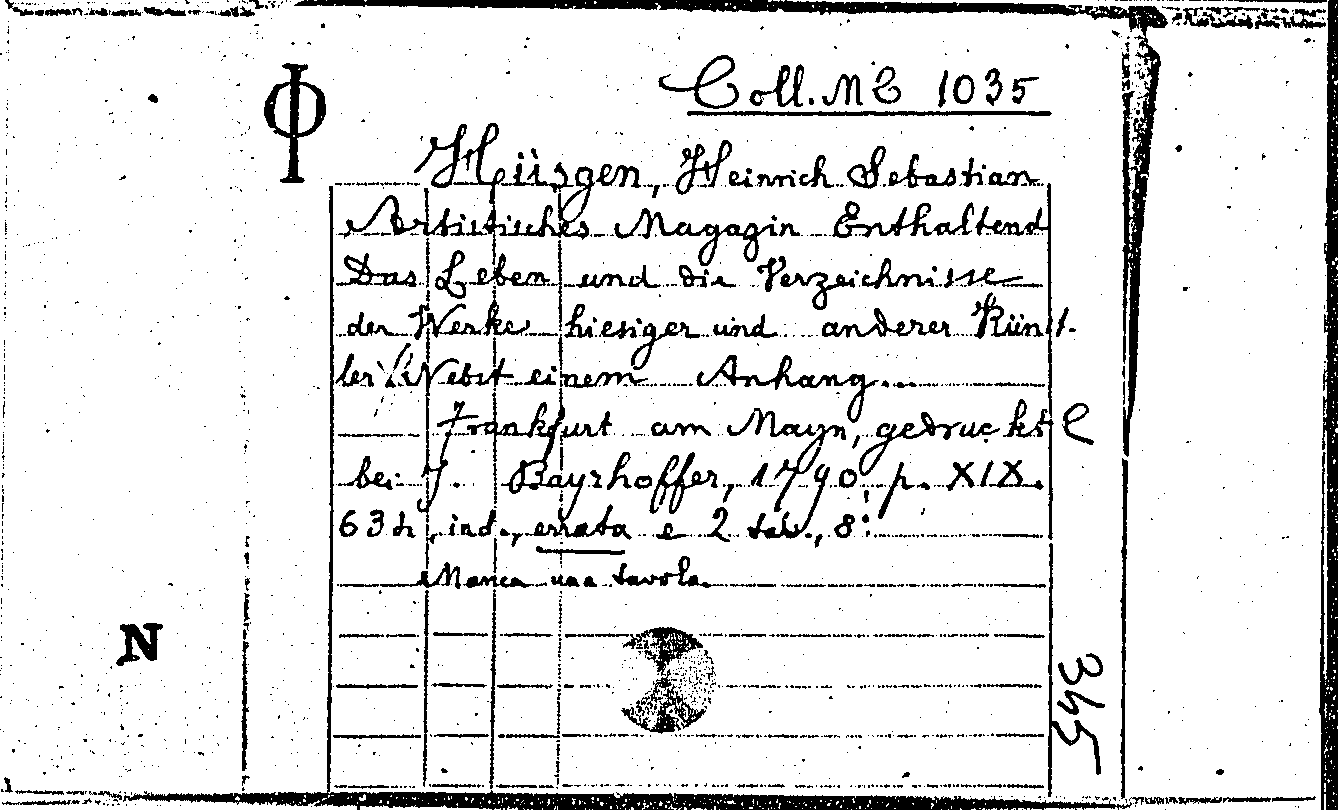 Φ
Coll. M C 1035
Hüsgen, Heinrich Sebastian
Artistisches Magazin Enthaltend
Das Leben und die Verzeichnisse
der Werke hiesiger und anderer Künst.
ler Nebst einem Anhang...
Frankfurt am Mayn, gedruckt
bei J. Bayrhoffer, 1790, p. XIX.
ind., errata e 2 tav., 8º
Manca una tavola.
N
345